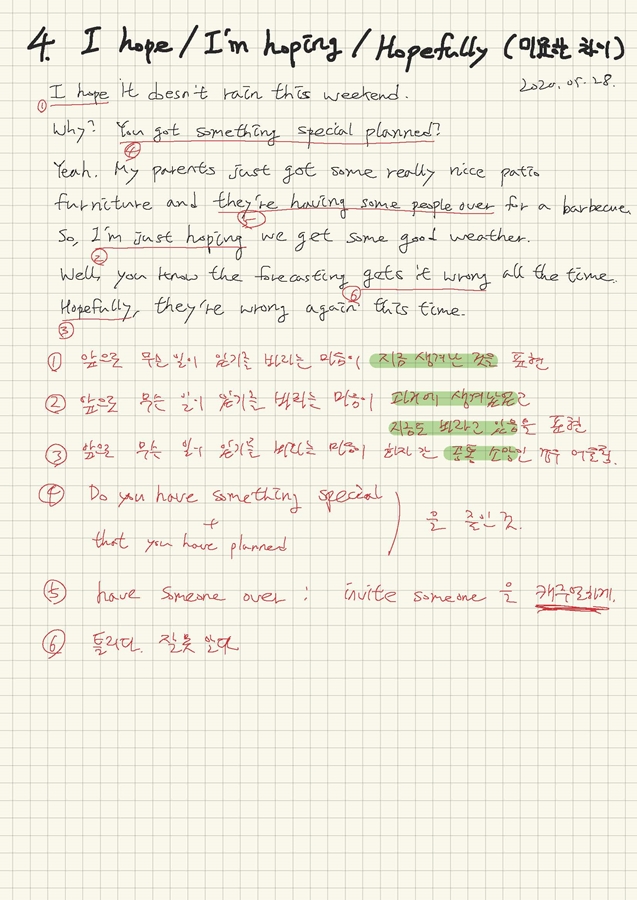 4. I hope / I'm hoping / Hopefully (미묘한 차이)
2020. 05. 28.
① I hope it doesn't rain this weekend.
Why? You got something special planned?
④
Yeah. My parents just got some really nice patio
furniture and they're having some people over for a barbecue.
⑤
So, I'm just hoping we get some good weather.
②
Well, you know the forecasting gets it wrong all the time.
⑥
Hopefully, they're wrong again this time.
③
① 앞으로 무슨 일이 있기를 바라는 마음이 지금 생겨난 것을 표현
② 앞으로 무슨 일이 있기를 바라는 마음이 과거에 생겨났고
지금도 바라고 있음을 표현
③ 앞으로 무슨 일이 있기를 바라는 마음이 화자 간 공통 소망인 경우 어울림.
④ Do you have something special
+
that you have planned
을 줄인 것.
⑤ have someone over : invite someone 을 캐주얼하게.
⑥ 틀리다. 잘못 알다